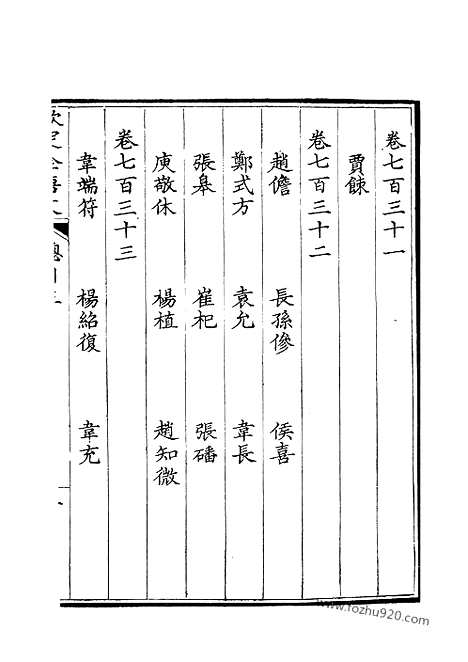 卷七百三十一
賈餗
卷七百三十二
趙儋 長孫傪 侯喜
鄭式方 袁允 韋長
張皋 崔杞 張磻
庾敬休 楊植 趙知微
卷七百三十三
韋端符 楊紹復 韋充
欽定全唐文 總目三
www.fozhu920.com